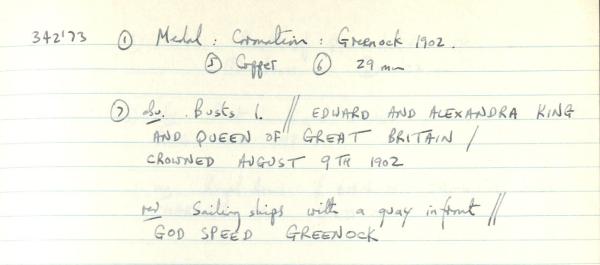 342'73 ① Medal : Coronation : Greenock 1902.
⑤ Copper ⑥ 29 mm
⑦ obv. Busts l. // EDWARD AND ALEXANDRA KING
AND QUEEN OF GREAT BRITAIN /
CROWNED AUGUST 9TH 1902
rev Sailing ships with a quay in front //
GOD SPEED GREENOCK